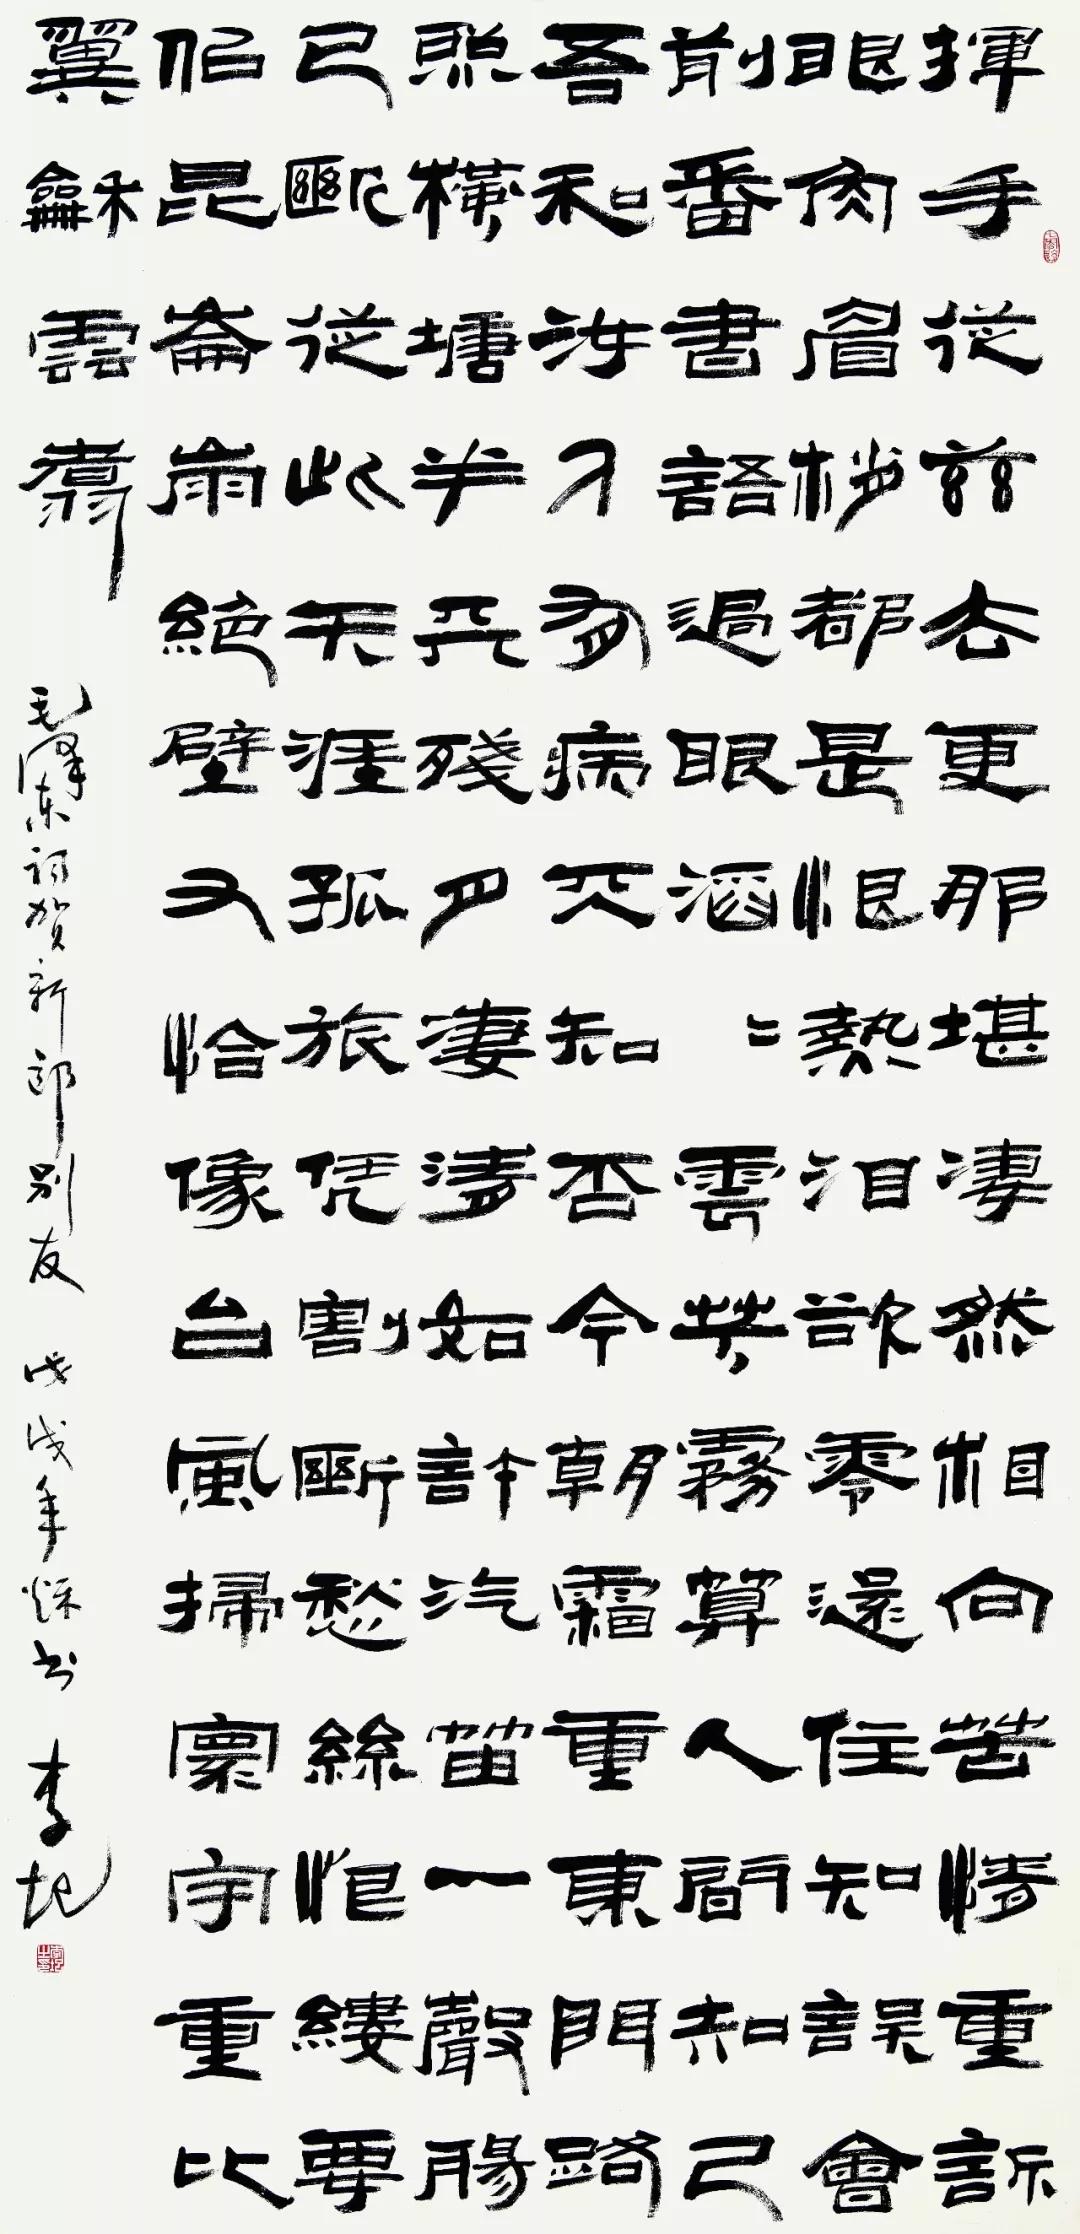 揮手從茲去更那堪凄然相向苦情重訴
眼角眉梢都是恨熱泪欲零還住知誤會
前番書語過眼滔〻雲共霧算人間知己
吾和汝人有病天知否今朝霜重東門路
照橫塘半天殘月凄清如許汽笛一聲腸
已斷從此天涯孤旅凭割斷愁絲恨縷要
似昆崙崩絕壁又恰像台風掃寰宇重比
翼龢雲翥
毛澤東詞賀新郎別友 戊戌年秋書 李